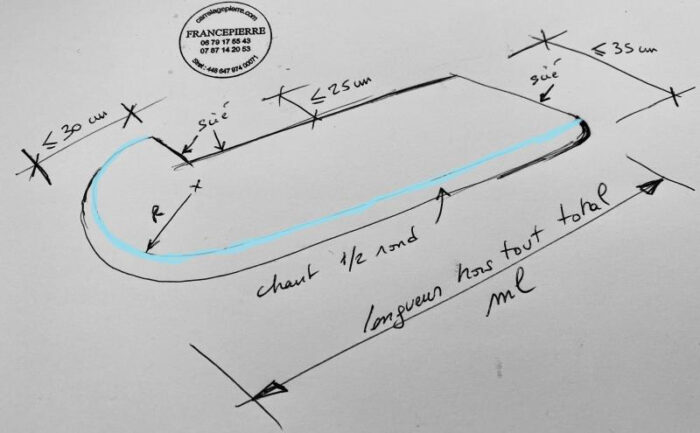 carrelagepierre.com
FRANCEPIERRE
06 79 17 65 43
07 87 14 20 53
Siret : 448 647 974 00071
≤ 30 cm
scié
≤ 25 cm
scié
≤ 35 cm
R
chant 1/2 rond
longueur hors tout total
ml